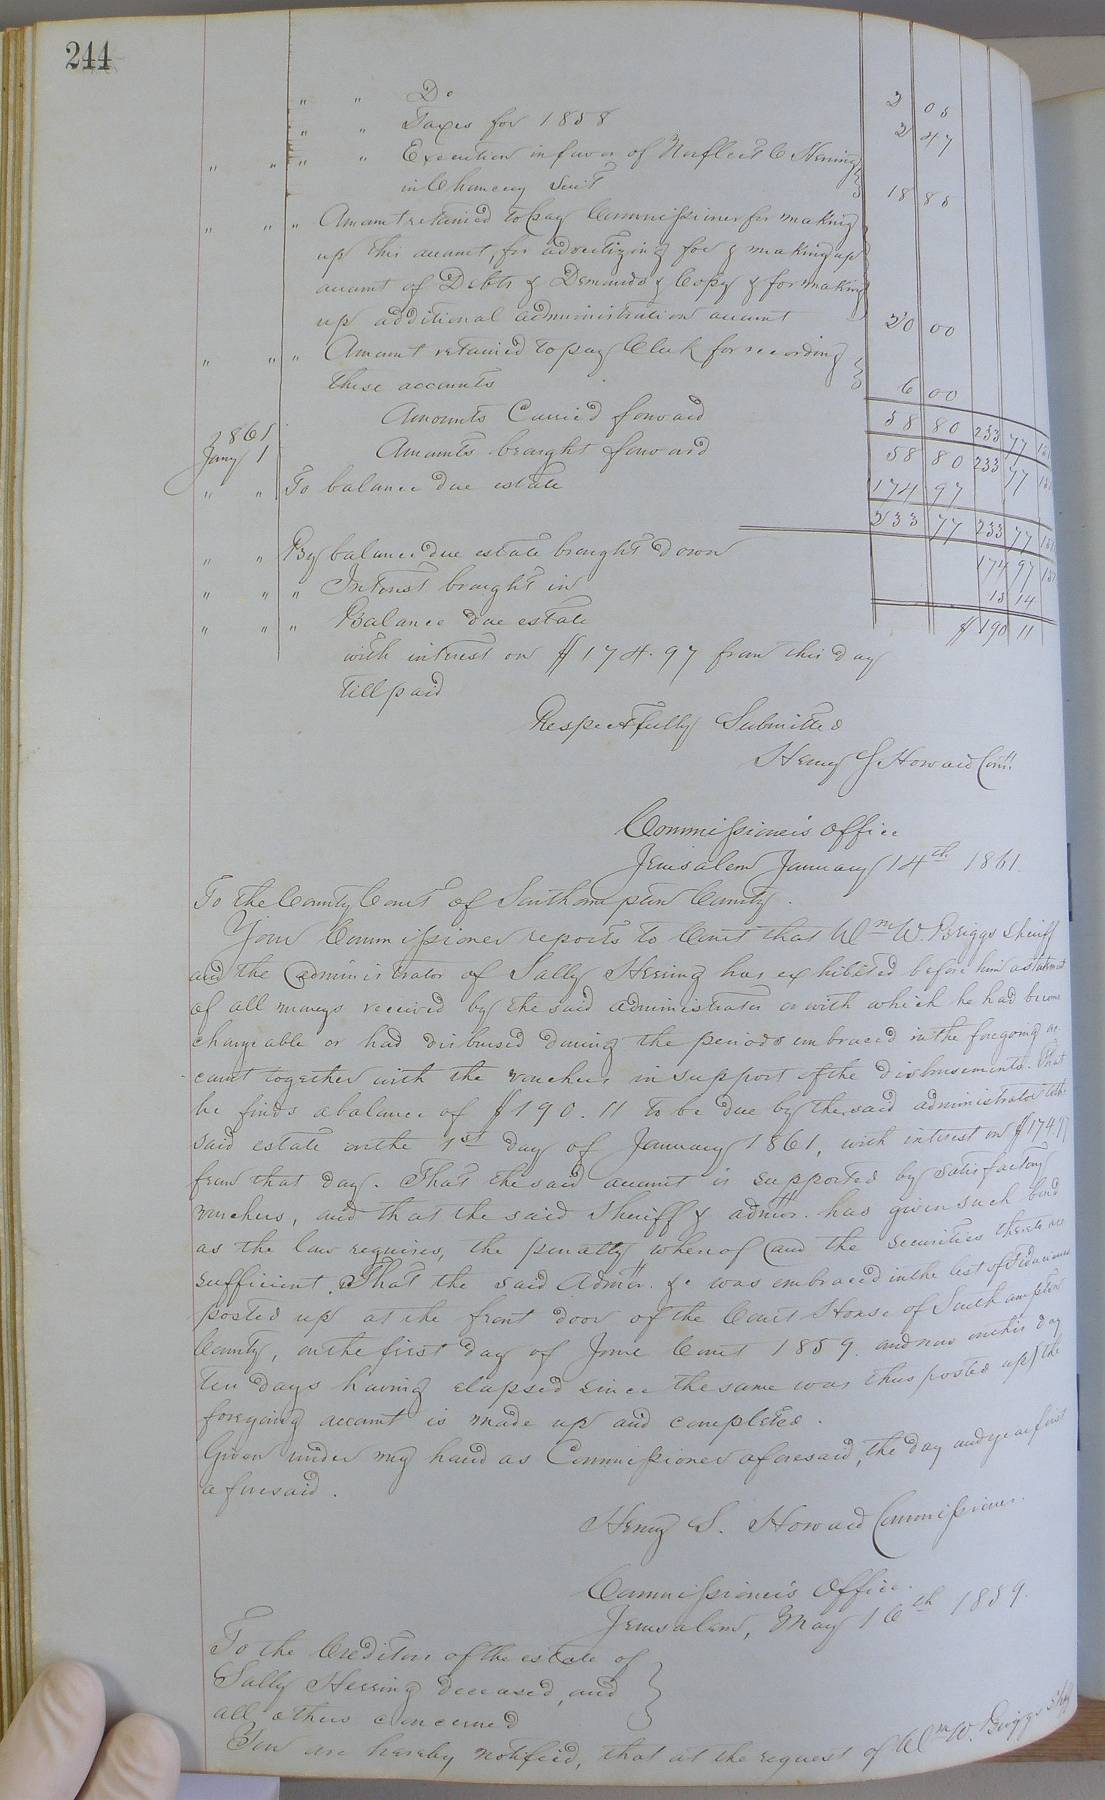 244
" " Do 2 05
" " Taxes for 1858 2 47
" " " " Execution in favor of Norfleet & Herring
in Chancery Suit 18 88
" " " Amount retained to pay Commissioner for making
up this account, for advertizing for & making up
account of Debts & Demands & Copy & for making
up additional administration account 20 00
" " " Amount retained to pay Clerk for recording
these accounts 6 00
Amounts Carried forward 58 80 233 77
1861
Jany 1 Amounts brought forward 58 80 233 77
" " To balance due estate 174 97
233 77 233 77
" " By balance due estate brought down 174 97
" " " Interest brought in 15 14
" " " Balance due estate $190 11
with interest on $174.97 from this day
till paid
Respectfully Submitted
Henry S Howard Comr.
Commissioner's Office
Jerusalem January 14th 1861.
To the County Court of Southampton County.
Your Commissioner reports to Court that Wm W. Briggs Sheriff
and the administrator of Sally Herring has exhibited before him a statement
of all moneys received by the said administrator or with which he had become
chargeable or had disbursed during the periods embraced in the foregoing ac-
count together with the vouchers in support of the disbursements. That
he finds a balance of $190.11 to be due by the said administrator to the
said estate on the 1st day of January 1861, with interest on $174.97
from that day. That the said account is supported by satisfactory
vouchers, and that the said Sheriff & admor. has given such bond
as the law requires, the penalty whereof and the securities thereto are
sufficient. That the said Admor. &c was embraced in the list of Fiduciaries
posted up at the front door of the Court House of Southampton
County, on the first day of June Court 1859. and now on this day
ten days having elapsed since the same was thus posted up, the
foregoing account is made up and completed.
Given under my hand as Commissioner aforesaid, the day and year first
aforesaid.
Henry S. Howard Commissioner.
Commissioner's Office.
Jerusalem, May 16th 1859.
To the Creditors of the estate of
Sally Herring deceased, and
all others concerned
You are hereby notified, that at the request of Wm W. Briggs Shff